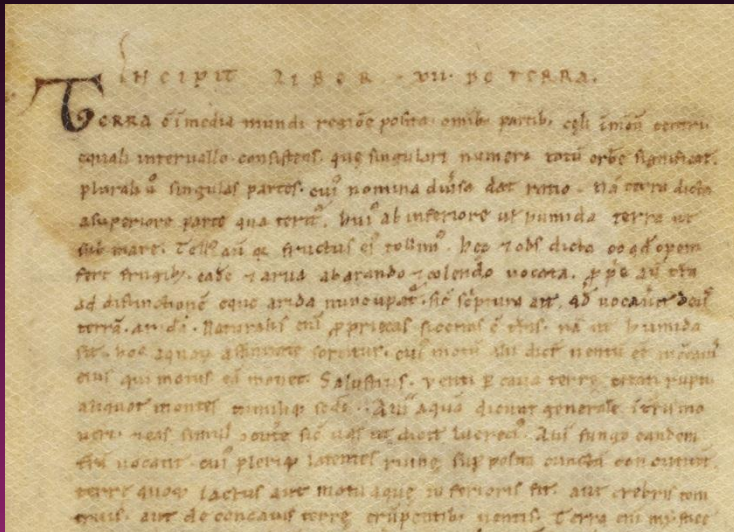 INCIPIT LIBER · VII · DE TERRA.
TERRA ē ī media mundi regiōe posita. omībꝫ partibꝫ cęli ī modū centri
equali intervallo consistens. quę singulari numero totū orbē significat.
plurali ũ singulas partes. cuiꝰ nomina diũsa dat ratio. Nā terra dicta
a superiore parte qua teritᷣ. humꝰ ab inferiore ut humida terra ut
sub mare. Tellꝰ aū qꝫ fructus eiꝰ tollimꝰ. hec & obs dicta eo qđ opem
fert frugibꝫ. eadē & arva ab arando & colendo vocata. ꝓpe aū t̄ra
ad distinctionē eque arida nuncupatᷣ. sic̄ scriptura ait. qđ vocaverit deus
terrā. aridā. Naturalis eni ꝓprietas siccitas ē terrę. nā ut humida
sit. hoc aquarum affinitate sortitus. cuiꝰ motū alii dicūt ventū eē
eius qui motus eā movet. Salustius. venti ꝑ cava terrę citati rupti
aliquot montes tumuliqꝫ sedē. Alii aquā dicunt generale ī terris mo
veri. & eas simul cute sic̄ vas ut dicit lucreciꝰ. Alii fungo eandem
terrā vocant. cuiꝰ pleriqꝫ latentes ruinę sup posita cuncta concutiunt.
terrę quoqꝫ iactus aut motu aquę inferioris fit. aut crebris ton
truis. aut de concavis terrę erūpentibꝫ ventis. Terra eni mystice